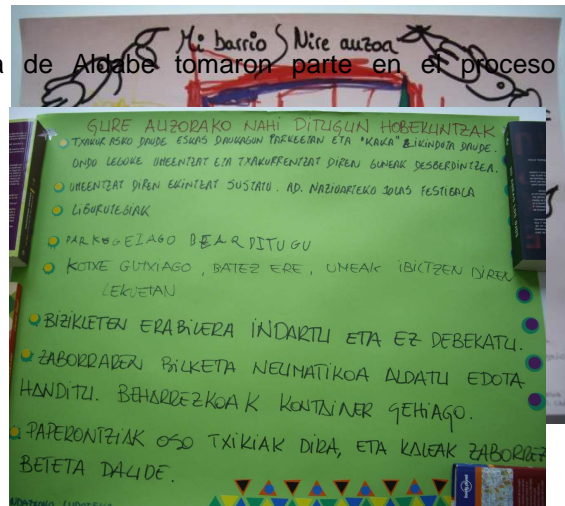 Mi barrio Nire auzoa
a de Aldabe tomaron parte en el proceso
GURE AUZORAKO NAHI DITUGUN HOBEKUNTZAK
TXAKUR ASKO DAUDE ESKAS DAUKAGUN PARKEETAN ETA "KAKA" ZIKINDUTA DAUDE.
ONDO LEGOKE UMEENTZAT ETA TXAKURRENTZAT DIREN GUNEAK DESBERDINTZEA.
UMEENTZAT DIREN EKINTZAK SUSTATU. AD. NAZIOARTEKO JOLAS FESTIBALA
LIBURUTEGIAK
PARKE GEIAGO BEAR DITUGU
KOTXE GUTXIAGO, BATEZ ERE, UMEAK IBILTZEN DIREN
LEKUETAN
BIZIKLETEN ERABILERA INDARTU ETA EZ DEBEKATU.
ZABORRAREN BILKETA NEUMATIKOA ALDATU EDOTA
HANDITU. BEHARREZKOAK KONTAINER GEHIAGO.
PAPERONTZIAK OSO TXIKIAK DIRA, ETA KALEAK ZABORREZ
BETETA DAUDE.